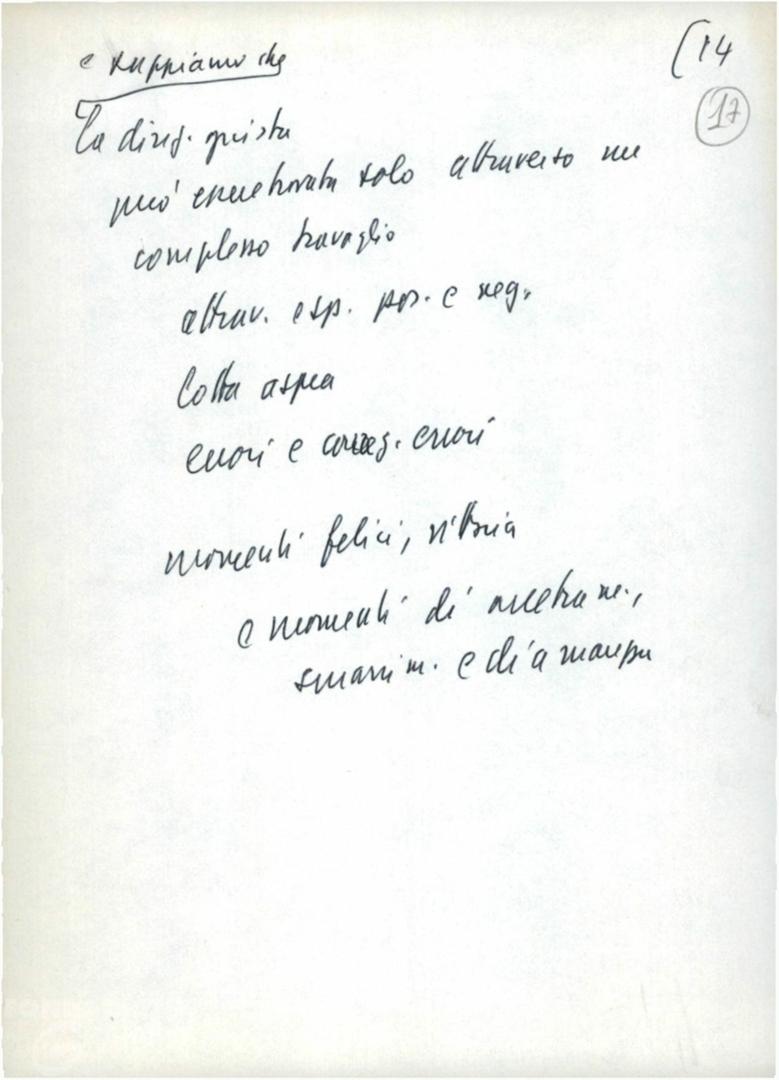 e sappiamo che
(14
17
La direz. giusta
può essere trovata solo attraverso un
complesso travaglio
attrav. esp. pos. e neg.
lotta aspra
errori e correz. errori
momenti felici, vittoria
e momenti di
smarrim. e di